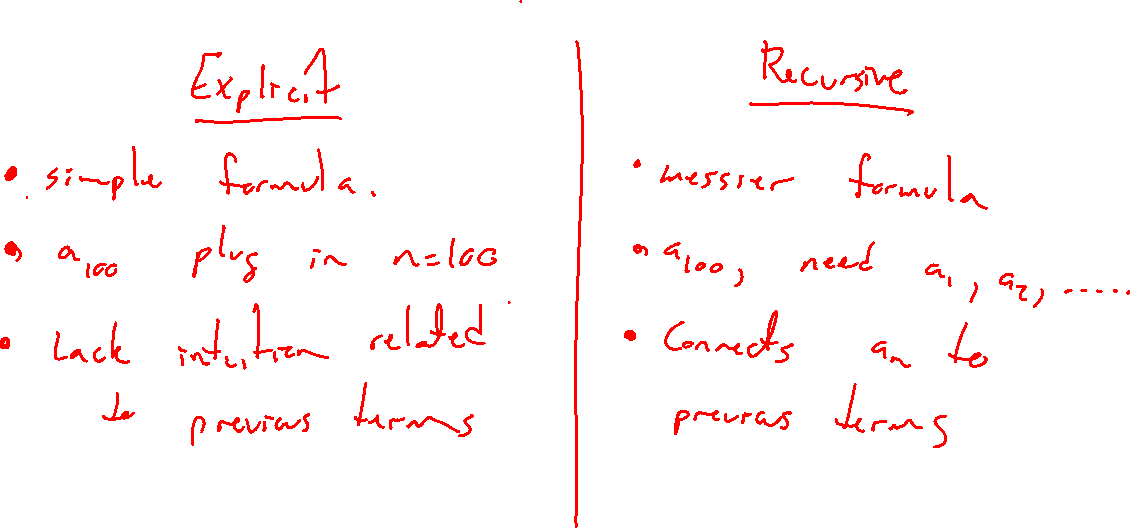 Explicit
• simple formula.
• a₁₀₀ plug in n=100
• Lack intuition related
to previous terms
Recursive
• messier formula
• a₁₀₀, need a₁, a₂, .....
• Connects aₙ to
previous terms